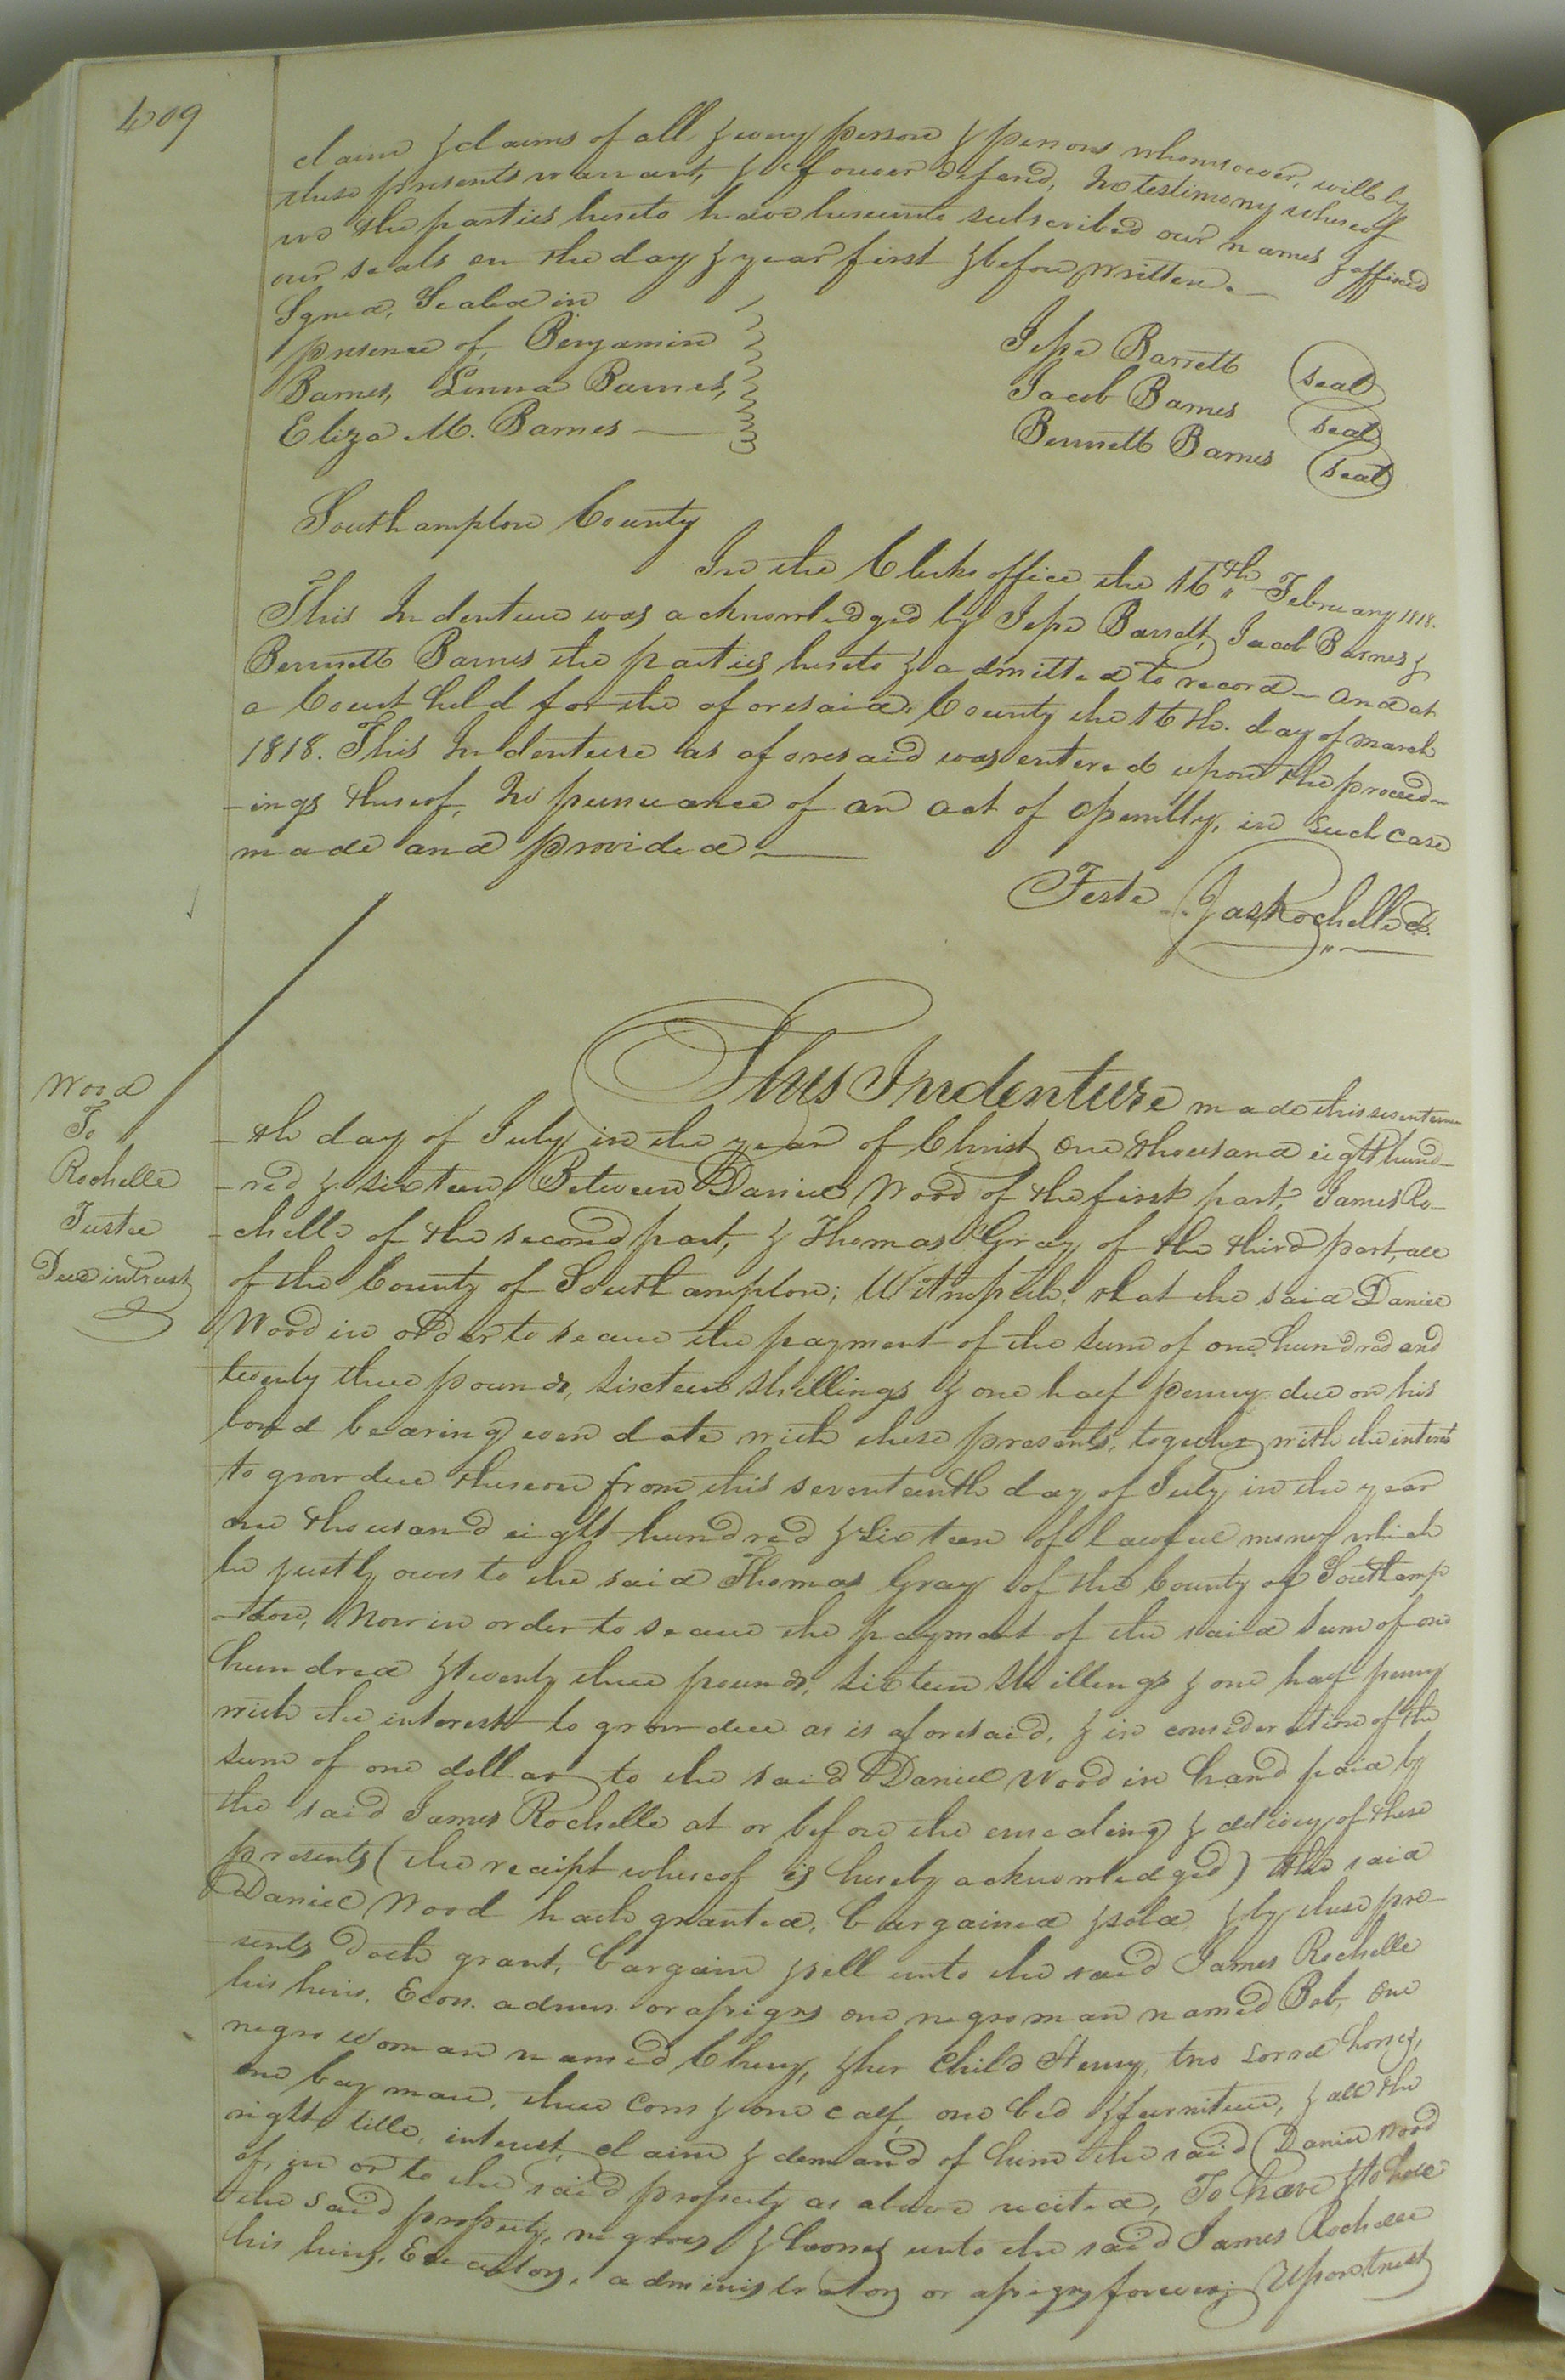 409
claim & claims of all & every person & persons whomsoever, will by
these presents warrant, & forever defend, In testimony whereof
we the parties hereto have hereunto subscribed our names & affixed
our seals on the day & year first & before written.
Signed, Sealed in
presence of, Benjamin
Barnes, Lenna Barnes,
Eliza M. Barnes
Jesse Barrett seal
Jacob Barnes seal
Bennett Barnes seal
Southampton County
In the Clerks office the 16th February 1818.
This Indenture was acknowledged by Jesse Barrett, Jacob Barnes &
Bennett Barnes the parties hereto & admitted to record - and at
a Court held for the aforesaid County the 16th. day of March
1818. This Indenture as aforesaid was entered upon the proceed-
-ings thereof, In pursuance of an act of assembly, in such case
made and provided
Teste Jas Rochelle Cl.
Wood
To
Rochelle
Tustee
Deed in trust
This Indenture made this seventeen
-th day of July in the year of Christ one thousand eight hund-
-red & sixteen, Between Daniel Wood of the first part, James Ro-
-chelle of the second part, & Thomas Gray of the third part, all
of the County of Southampton; Witnesseth, that the said Daniel
Wood in order to secure the payment of the sum of one hundred and
twenty three pounds, sixteen shillings & one half penny due on his
bond bearing even date with these presents, together with the interest
to grow due thereon from this seventeenth day of July in the year
one thousand eight hundred & sixteen of lawful money which
he justly owes to the said Thomas Gray of the County of Southamp
-ton, Now in order to secure the payment of the said sum of one
hundred & twenty three pounds, sixteen shillings & one half penny
with the interest to grow due as is aforesaid, & in consideration of the
sum of one dollar to the said Daniel Wood in hand paid by
the said James Rochelle at or before the ensealing & delivery of these
presents (the receipt whereof is hereby acknowledged) the said
Daniel Wood hath granted, bargained & sold & by these pre-
sents doth grant, bargain & sell unto the said James Rochelle
his heirs, Exors. admrs. or assigns one negro man named Bob, one
negro woman named Cherry, & her child Henry, two sorrel horses,
one bay mare, three Cows & one calf, one bed & furniture, & all the
right, title, interest, claim & demand of him the said Daniel Wood
of, in or to the said property as above recited, To have & to hold
the said property, negroes & horses unto the said James Rochelle
his heirs, Executors, administrators or assigns forever; Upon trust